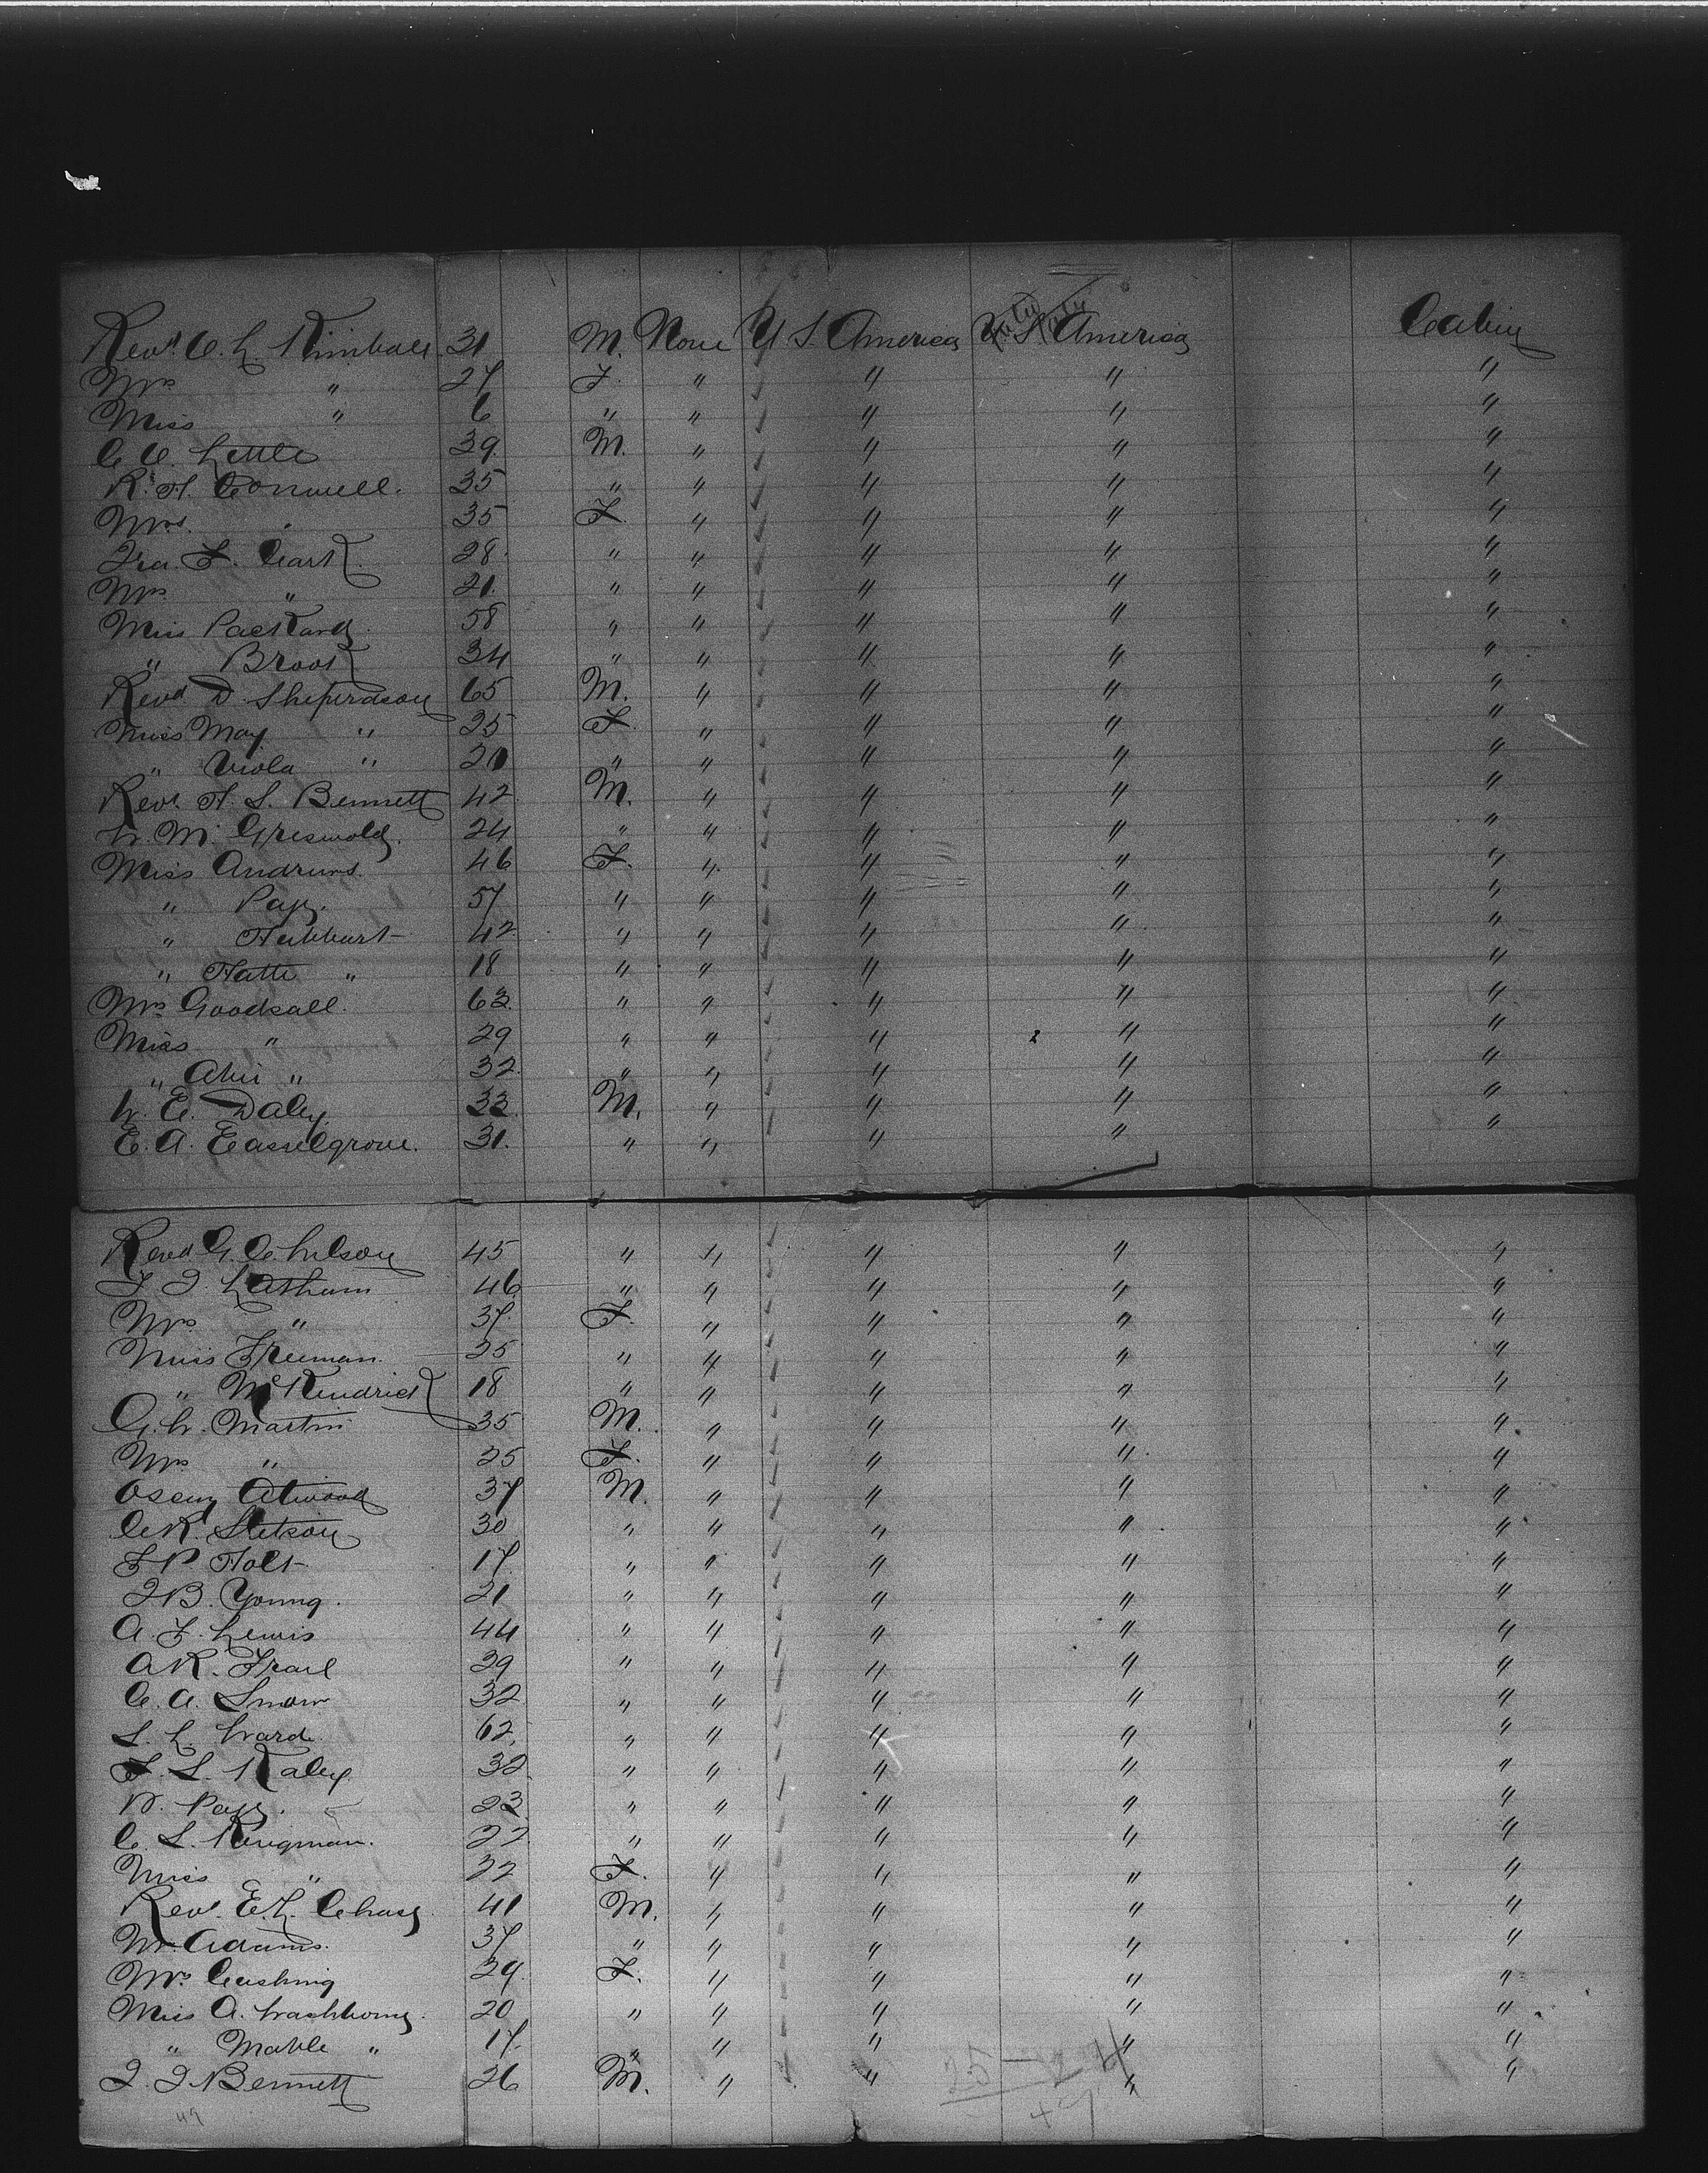 Revd C. L. Kimball 31 M. None U.S. America U.S. America Cabin
Mrs " 27 F. " " " "
Miss " 6 " " " " "
C. C. Little 39. M. " " " "
R. H. Conwell. 35 " " " " "
Mrs. " 35 F. " " " "
Ira F. Cark. 28. " " " " "
Mrs. " 21. " " " " "
Miss Packard. 58 " " " " "
" Brook 34 " " " " "
Revd D. Sheperdson 65 M. " " " "
Miss May " 25 F. " " " "
" Viola " 20 " " " " "
Revd. H. S. Bennett 42 M. " " " "
W. M. Griswold. 24 " " " " "
Miss Andrews. 46 F. " " " "
" Page. 57 " " " " "
" Hubbart 42 " " " " "
" Hatte " 18 " " " " "
Mrs Goodsall. 63. " " " " "
Miss " 29 " " " " "
" " 32. " " " " "
W. E. Daley. 33. M. " " " "
E. A. Easselgrove. 31. " " " " "
Revd G. C. Wilson 45 " " " " "
F J. Latham 46 " " " " "
Mrs " 37. F. " " " "
Miss Freeman. 25 " " " " "
" McKendrick 18 " " " " "
G. W. Martin 35 M. " " " "
Mrs " 25 F. " " " "
Oscar Atwood 37 M. " " " "
C. K. Stetson 30 " " " " "
F P Holt 17. " " " " "
J B. Young. 21 " " " " "
A. F. Lewis 44 " " " " "
A K. Frail 29 " " " " "
C. A. Snow 32 " " " " "
S. L. Ward. 62. " " " " "
F. S. Kaley 32 " " " " "
N. Page. 23. " " " " "
C. S. Kingman. 27 " " " " "
Miss " 22 F. " " " "
Revd. E. L. Chase. 41 M. " " " "
Mr. Adams. 37 " " " " "
Mrs Cushing 29. F. " " " "
Miss A. Washborne. 20 " " " " "
" Mable " 17. " " " " "
J. J. Bennett 26 M. " " " "
25 – 24
49
49